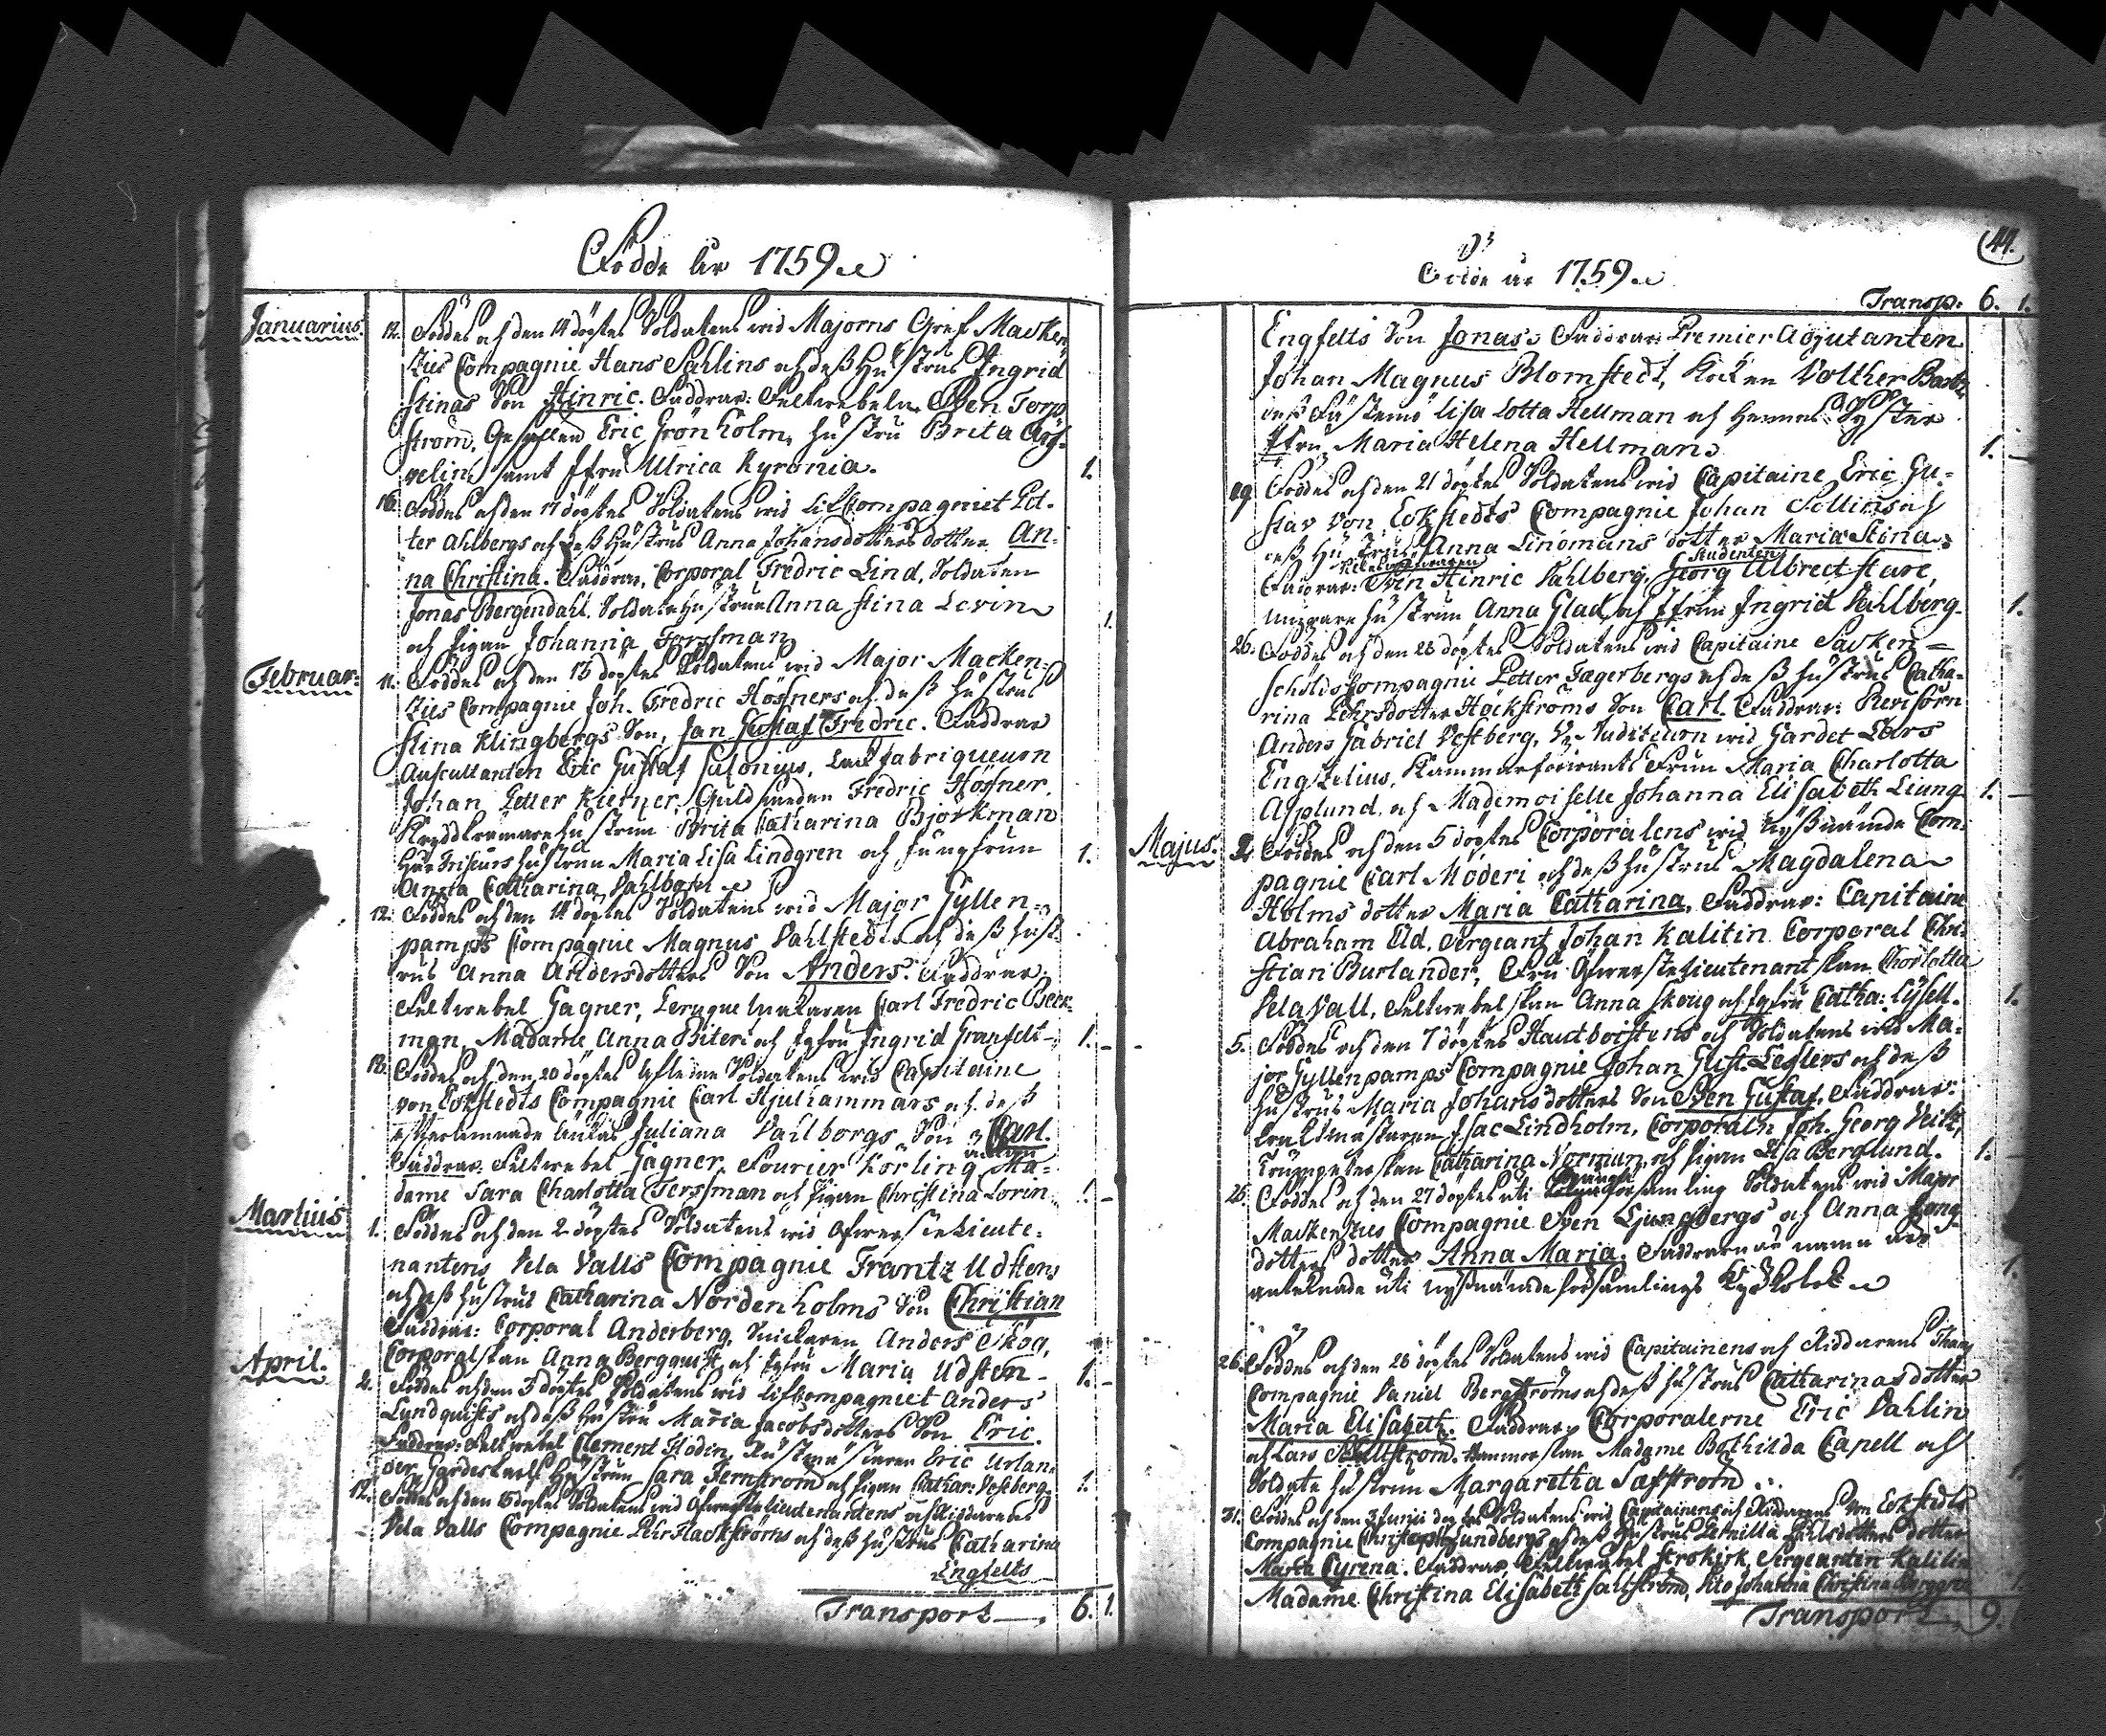 Födde År 1759
Januarius.
12. Föddes och den 14 döptes Soldatens wid Majorns Gref Macken
zies Compagnie Hans Sahlins och deß Hustrus Ingrid
Stinas Son Hinric. Faddrar: Feltwebeln Sven Torp
ström, Gesällen Eric Grönholm, hustru Brita
velin, samt Jfru Ulrica Kyronia. 1.
16. Föddes och den 17 döptes Soldatens wid LifCompagniet Pet-
ter Ahlbergs och deß Hustrus Anna Johansdotters dotter An-
na Christina. Faddrar, Corporal Fredric Lind, Soldaten
Jonas Bergendahl. Soldatehustrun Anna Stina Levin
och Pigan Johanna Forssman 1.
Februar:
11. Föddes och den 13 döptes Soldatens wid Major Macken-
zies Compagnie Joh. Fredric Hösners och deß Hustrus
Stina Klingbergs Son, Jan Gustaf Fredric. Faddrar
Auscultanten Eric Gustaf Salonius, Fabriqueuren
Johan Petter Kierner, Guldsmeden Fredric Hösner,
Kryddkrämarehustrun Brita Catharina Björkman
Hustrun Maria Lisa Lindgren och Jungfrun
Anna Catharina Dahlbom 1.
12. Föddes och den 14 döptes Soldatens wid Major Gyllen-
pamps Compagnie Magnus Dahlstedts och deß Hust-
rus Anna Andersdotters Son Anders. Faddrar:
Feltwebel Gagner, Peruquemakaren Carl Fredric Beck-
man, Madame Anna Biteri och Jgfru Ingrid Granfelt 1.
18. Föddes och den 20 döptes Afledne Soldatens wid Capitaine
von Eckstedts Compagnie Carl Hjulhammars och deß
efterlemnade Enkas Juliana Dahlborgs Son Carl.
Faddrar: Feltwebel Gagner, Fourier Körling, Ma-
dame Sara Charlotta Terssman och Pigan Christina Lorin 1.
Martius
1. Föddes och den 2 döptes Soldatens wid Öfwerste Lieute-
nantens Dela Valls Compagnie Frantz Udstens
och deß Hustrus Catharina Nordenholms Son Christian
Faddrar: Corporal Anderberg, Snickaren Anders Skog,
Corporalskan Anna Bergquist och Jgfru Maria Udsten 1.
April.
2. Föddes och den 3 döptes Soldatens wid LifCompagniet Anders
Lyndquists och deß Hustru Maria Jacobsdotters Son Eric.
Faddrar: Feltwebel Clement Hodin, Rustmästaren Eric Urlan-
der, Hustrun Sara Fernström och Pigan Cathar: Westberg. 1.
12. Föddes och den 15 döptes Soldatens wid Öfwerste Lieutenantens och Riddarens
Dela Valls Compagnie Pehr Hackströms och deß Hustrus Catharina
Engfelts
Transport 6. 1.
44.
Födde år 1759
Transp. 6. 1.
Engfelts Son Jonas. Faddrar: Premier Adjutanten
Johan Magnus Blomstedt, Kocken Volther
deß Fästemö Lisa Lotta Hellman och hennes Syster
Jfru Maria Helena Hellman 1.
19 Föddes och den 21 döptes Soldatens wid Capitaine Eric Gu-
stav von Eckstedts Compagnie Johan Sellins och
deß Hustrus Anna Lindmans dotter Maria Stina.
Faddrar: Sven Hinric Dahlberg, Studenten Georg Albrect Stare,
Murgare hustrun Anna Glad, och Jfrun Ingrid Dahlberg. 1.
26. Föddes och den 28 döptes Soldatens wid Capitaine Sacken-
schölds Compagnie Petter Fagerbergs och deß Hustrus Catha-
rina Pehrsdotter Höckströms Son Carl. Faddrar: Revisorn
Anders Gabriel Westberg, V. Auditeuren wid Gardet Lars
Engzelius, Kammarförwants Frun Maria Charlotta
Asplund, och Mademoiselle Johanna Elisabeth Liung 1.
Majus.
2 Föddes och den 5 döptes Corporalens wid nyßnämde Com-
pagnie Carl Möderi och deß Hustrus Magdalena
Holms dotter Maria Catharina. Faddrar: Capitaine
Abraham Eld, Sergeant Johan Kalitin Corporal Chri-
stian Burlander, Fru Öfwerstelieutenantskan Charlotta
Dela Vall, Feltwebelskan Anna Skoug och Jgfru Catha: Lysell. 1.
5. Föddes och den 7 döptes Hautboistens och Soldatens wid Ma-
jor Gyllenpamps Compagnie Johan Gust. Leslers och deß
Hustrus Maria Johansdotters Son Sven Gustaf. Faddrar:
Isac Lindholm, Corporaln Joh. Georg Veitt,
Trumpeterskan Catharina Norman, och Pigan Lisa Berglund. 1.
25. Föddes och den 27 döptes uti församling Soldatens wid Major
Mackenzies Compagnie Sven Ljungbergs och Anna Jons
dotters dotter Anna Maria. Faddrarnas namn äro
antecknade uti nyßnämde församlings Kyrkobok 1.
26. Föddes och den 28 döptes Soldatens wid Capitainens och Riddarens
Compagnie Daniel Bergströms och deß Hustrus Catharinas dotter
Maria Elisabeth. Faddrar: Corporalerne Eric Dahlin
och Lars Madame Bothilda Capell och
Soldate hustrun Margaretha Säfström. 1.
31. Föddes och den 3 Junii döptes Soldatens wid Capitainens och Riddarens von Eckstedts
Compagnie Christoph Lundbergs och deß Hustrus Pernilla Nilsdotters dotter
Maria Cyrena. Faddrar, Feltwebel Strokirk, Sergeanten Kalitin
Madame Christina Elisabeth Saltström, Johanna Christina Berggren 1.
Transport 9.